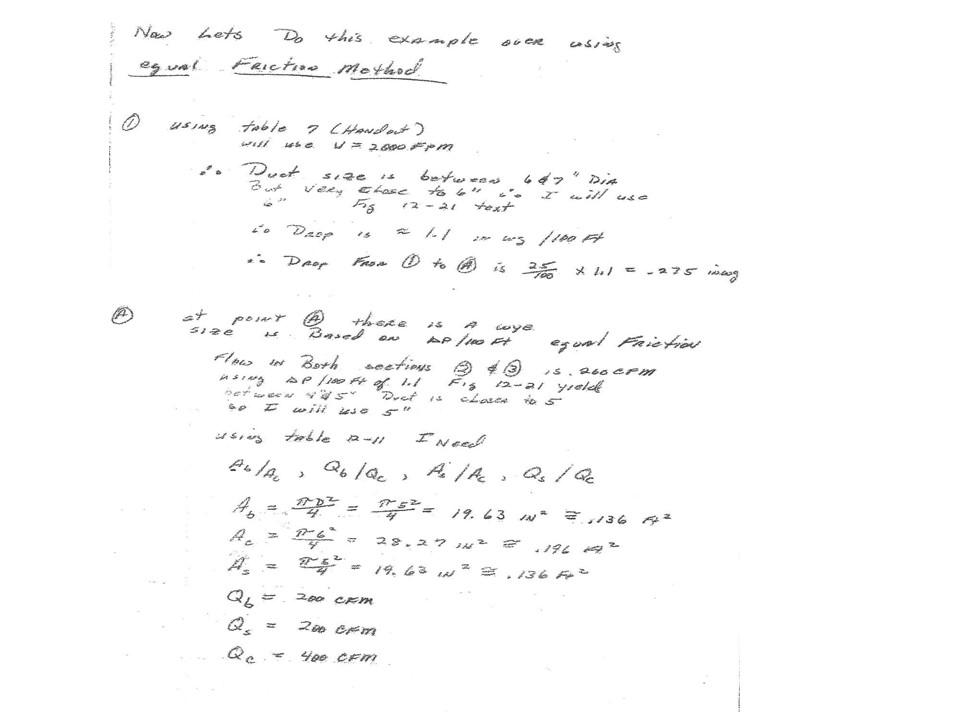 Now Lets Do this example over using
equal Friction Method
① using table 7 (Handout)
will use V = 2000 FPM
∴ Duct size is between 6 & 7" Dia
But very close to 6" ∴ I will use
6" Fig 12-21 text
∴ Drop is ≈ 1.1 in wg /100 Ft
∴ Drop From ① to Ⓐ is 25/100 × 1.1 = .275 inwg
Ⓐ at point Ⓐ there is A wye
size is Based on ΔP/100 Ft equal Friction
Flow in Both sections ② & ③ is 200 CFM
using ΔP/100 Ft of 1.1 Fig 12-21 yield
between 4 & 5" Duct is closer to 5
so I will use 5"
using table 12-11 I Need
Ab/Ac , Qb/Qc , As/Ac , Qs/Qc
Ab = πD²/4 = π5²/4 = 19.63 IN² ≅ .136 Ft²
Ac = π6²/4 = 28.27 IN² ≅ .196 Ft²
As = π5²/4 = 19.63 IN² ≅ .136 Ft²
Qb = 200 CFM
Qs = 200 CFM
Qc = 400 CFM